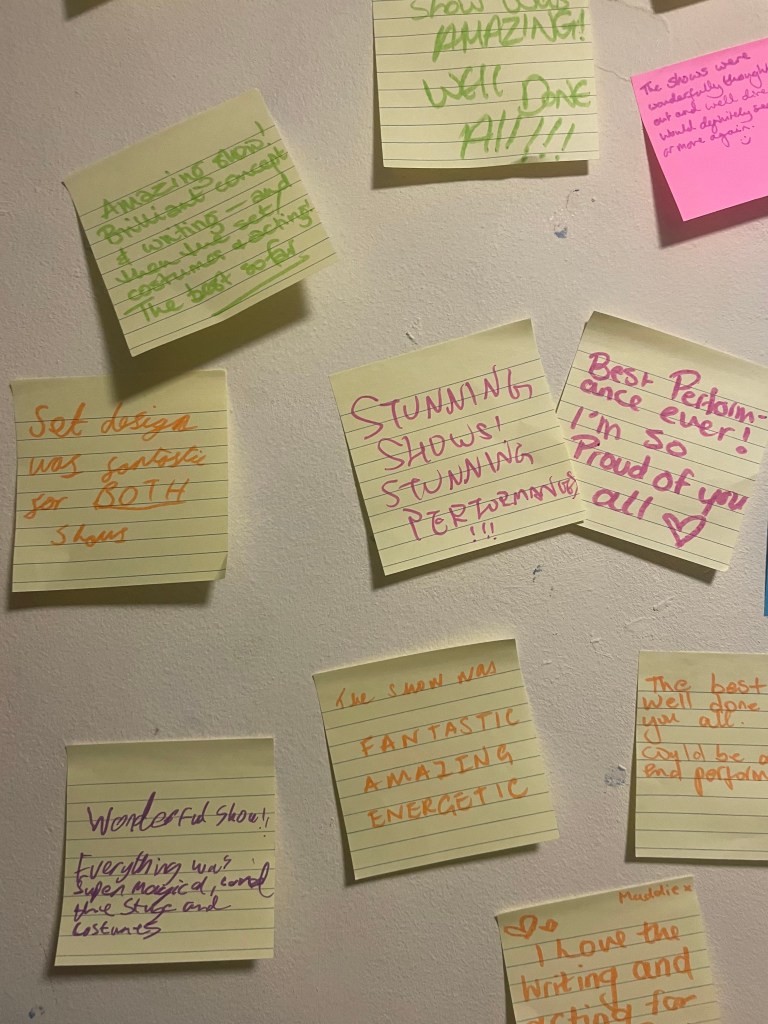 Show was
AMAZING!
WELL DONE
All!!!!
The shows were
wonderfully thought
out and well dire
would definitely see
or more again.
Amazing show!
Brilliant concept
& writing - and
then the set/
costumes & acting!
The best so far
Set design
was fantastic
for BOTH
shows
STUNNING
SHOWS!
STUNNING
PERFORMANCES
!!!
Best Perform-
ance ever!
I'm so
Proud of you
all
The show was
FANTASTIC
AMAZING
ENERGETIC
The best
well done
you all.
could be a
end perform
Wonderful show!!
Everything was
super magical,
the and
costumes
Maddie x
I love the
writing and
acting for